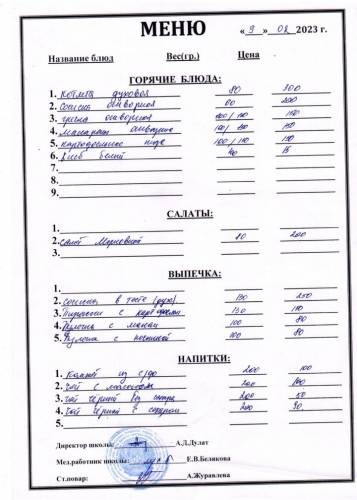 МЕНЮ
« 9 » 02 2023 г.
Название блюд Вес(гр.) Цена
ГОРЯЧИЕ БЛЮДА:
1. котлета духовая 80 300
2. Сосиска отварная 60 200
3. гречка отварная 150
4. макароны отварные 150
5. картофельное пюре 100/110 150
6. Хлеб белый 40 15
7.
8.
9.
САЛАТЫ:
1.
2. салат Морковный 80 200
ВЫПЕЧКА:
1.
2. сосиска в тесте 130 250
3. Пирожки с картофелем 130 110
4. Булочка с маком 100 80
5. Булочка с 100 80
НАПИТКИ:
1. Компот из с/ф 200 100
2. Чай с молоком 200 100
3. чай чёрный без сахара 200 50
4. Чай чёрный с сахаром 200 90
5.
Директор школы: А.Л.Дулат
Мед.работник школы: Е.В.Белякова
Ст.повар: А.Журавлева